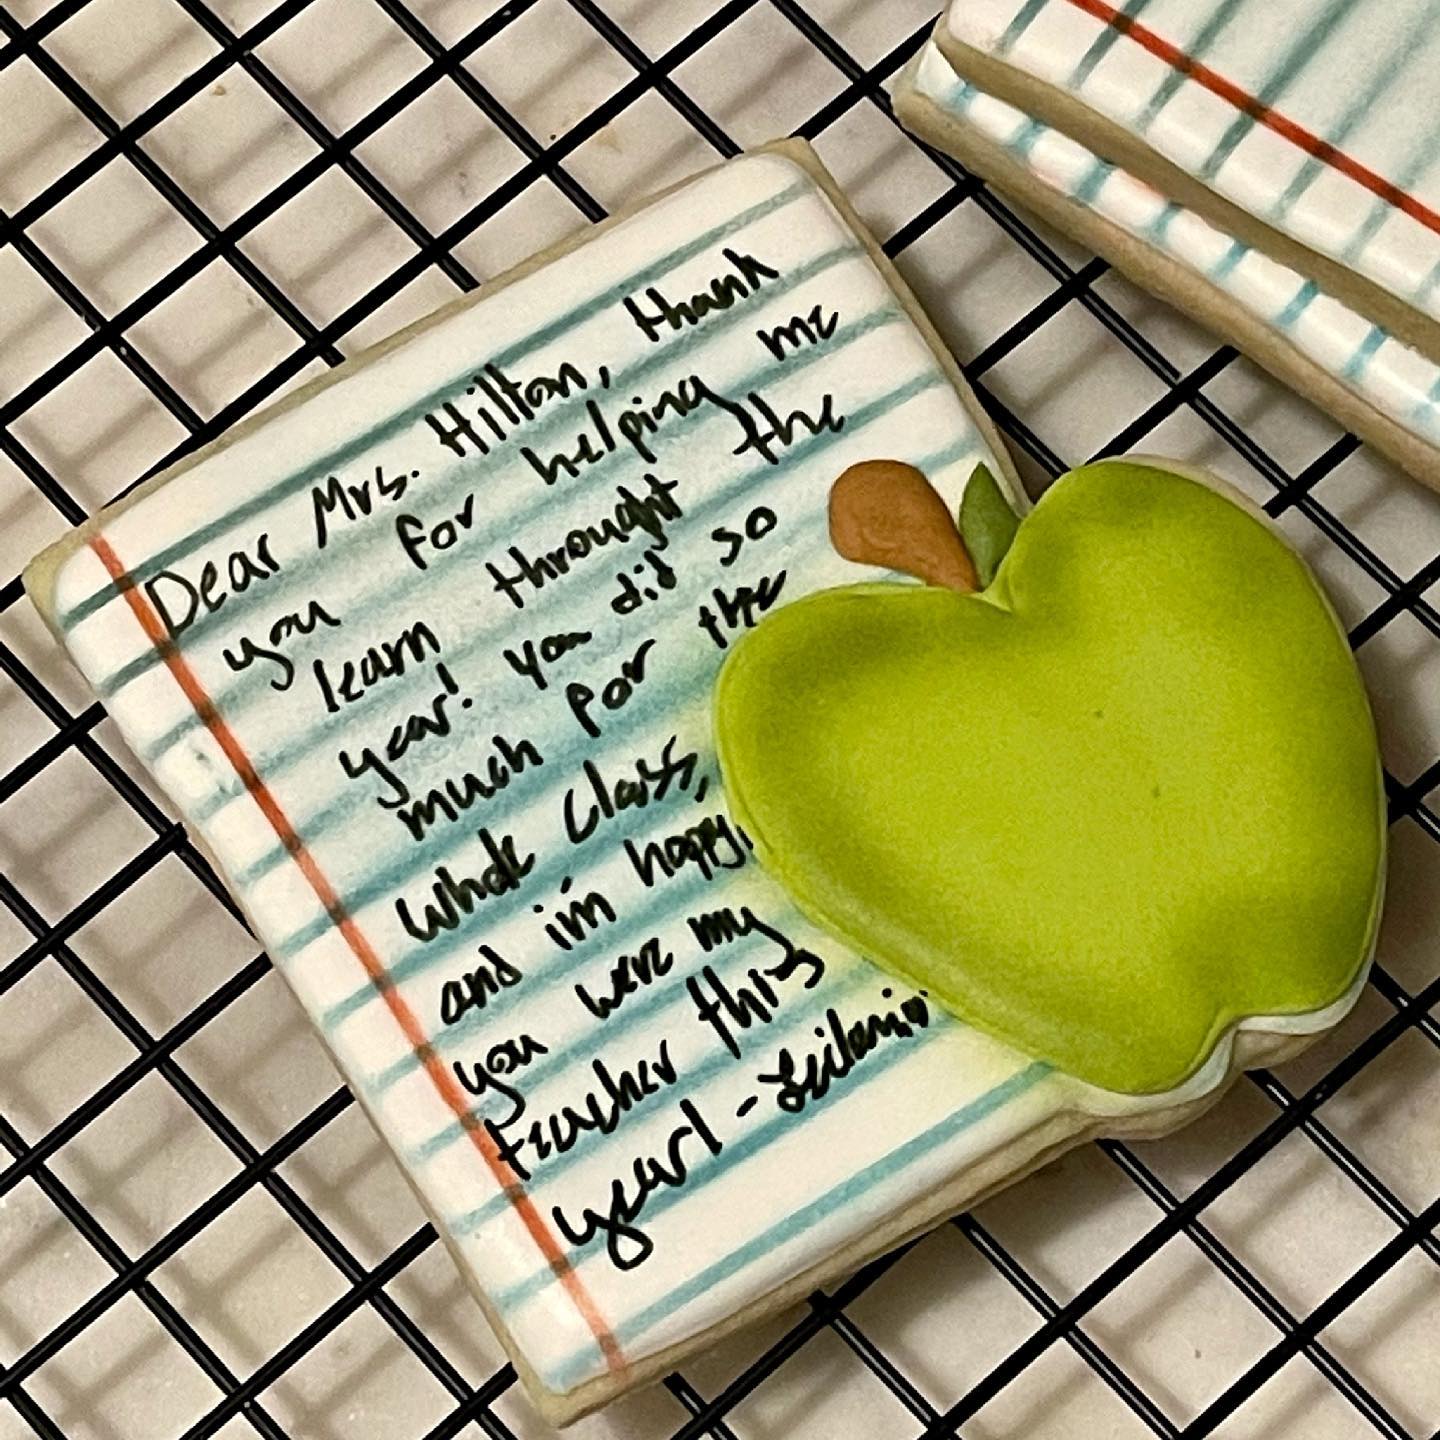 Dear Mrs. Hilton, thank
you for helping me
learn throught the
year! You did so
much for the
whole class,
and i'm happy
you were my
teacher this
year! -Leilania